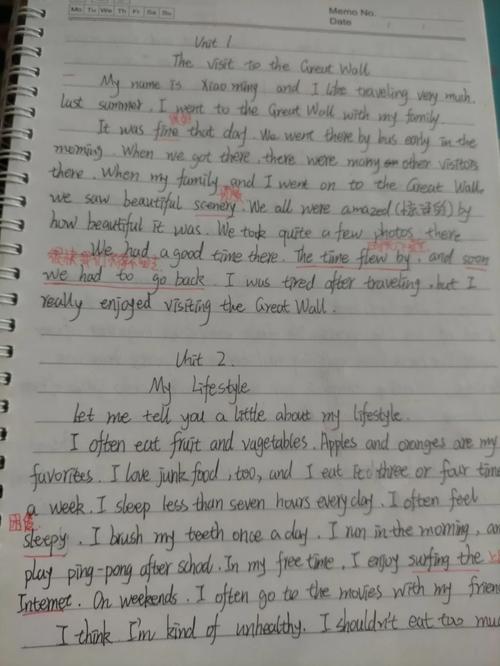 Mo Tu We Th Fr Sa Su
Memo No.
Date
Unit 1
The visit to the Great Wall
My name is Xiao ming and I like traveling very much.
last summer. I went to the Great Wall with my family.
It was fine that day. We went there by bus early in the
morning. When we got there, there were many other visitors
there. When my family and I went on to the Great Wall,
we saw beautiful scenery. We all were amazed (惊讶的) by
how beautiful it was. We took quite a few photos there
We had a good time there. The time flew by, and soon
we had to go back. I was tired after traveling, but I
really enjoyed visiting the Great Wall.
Unit 2.
My Lifestyle
Let me tell you a little about my lifestyle.
I often eat fruit and vagetables. Apples and oranges are my
favorites. I love junk food, too, and I eat it three or four time
a week. I sleep less than seven hours every day. I often feel
困倦
sleepy. I brush my teeth once a day. I run in the morning, an
play ping-pong after school. In my free time, I enjoy surfing the
Internet. On weekends, I often go to the movies with my friend
I think I'm kind of unhealthy. I shouldn't eat too mu